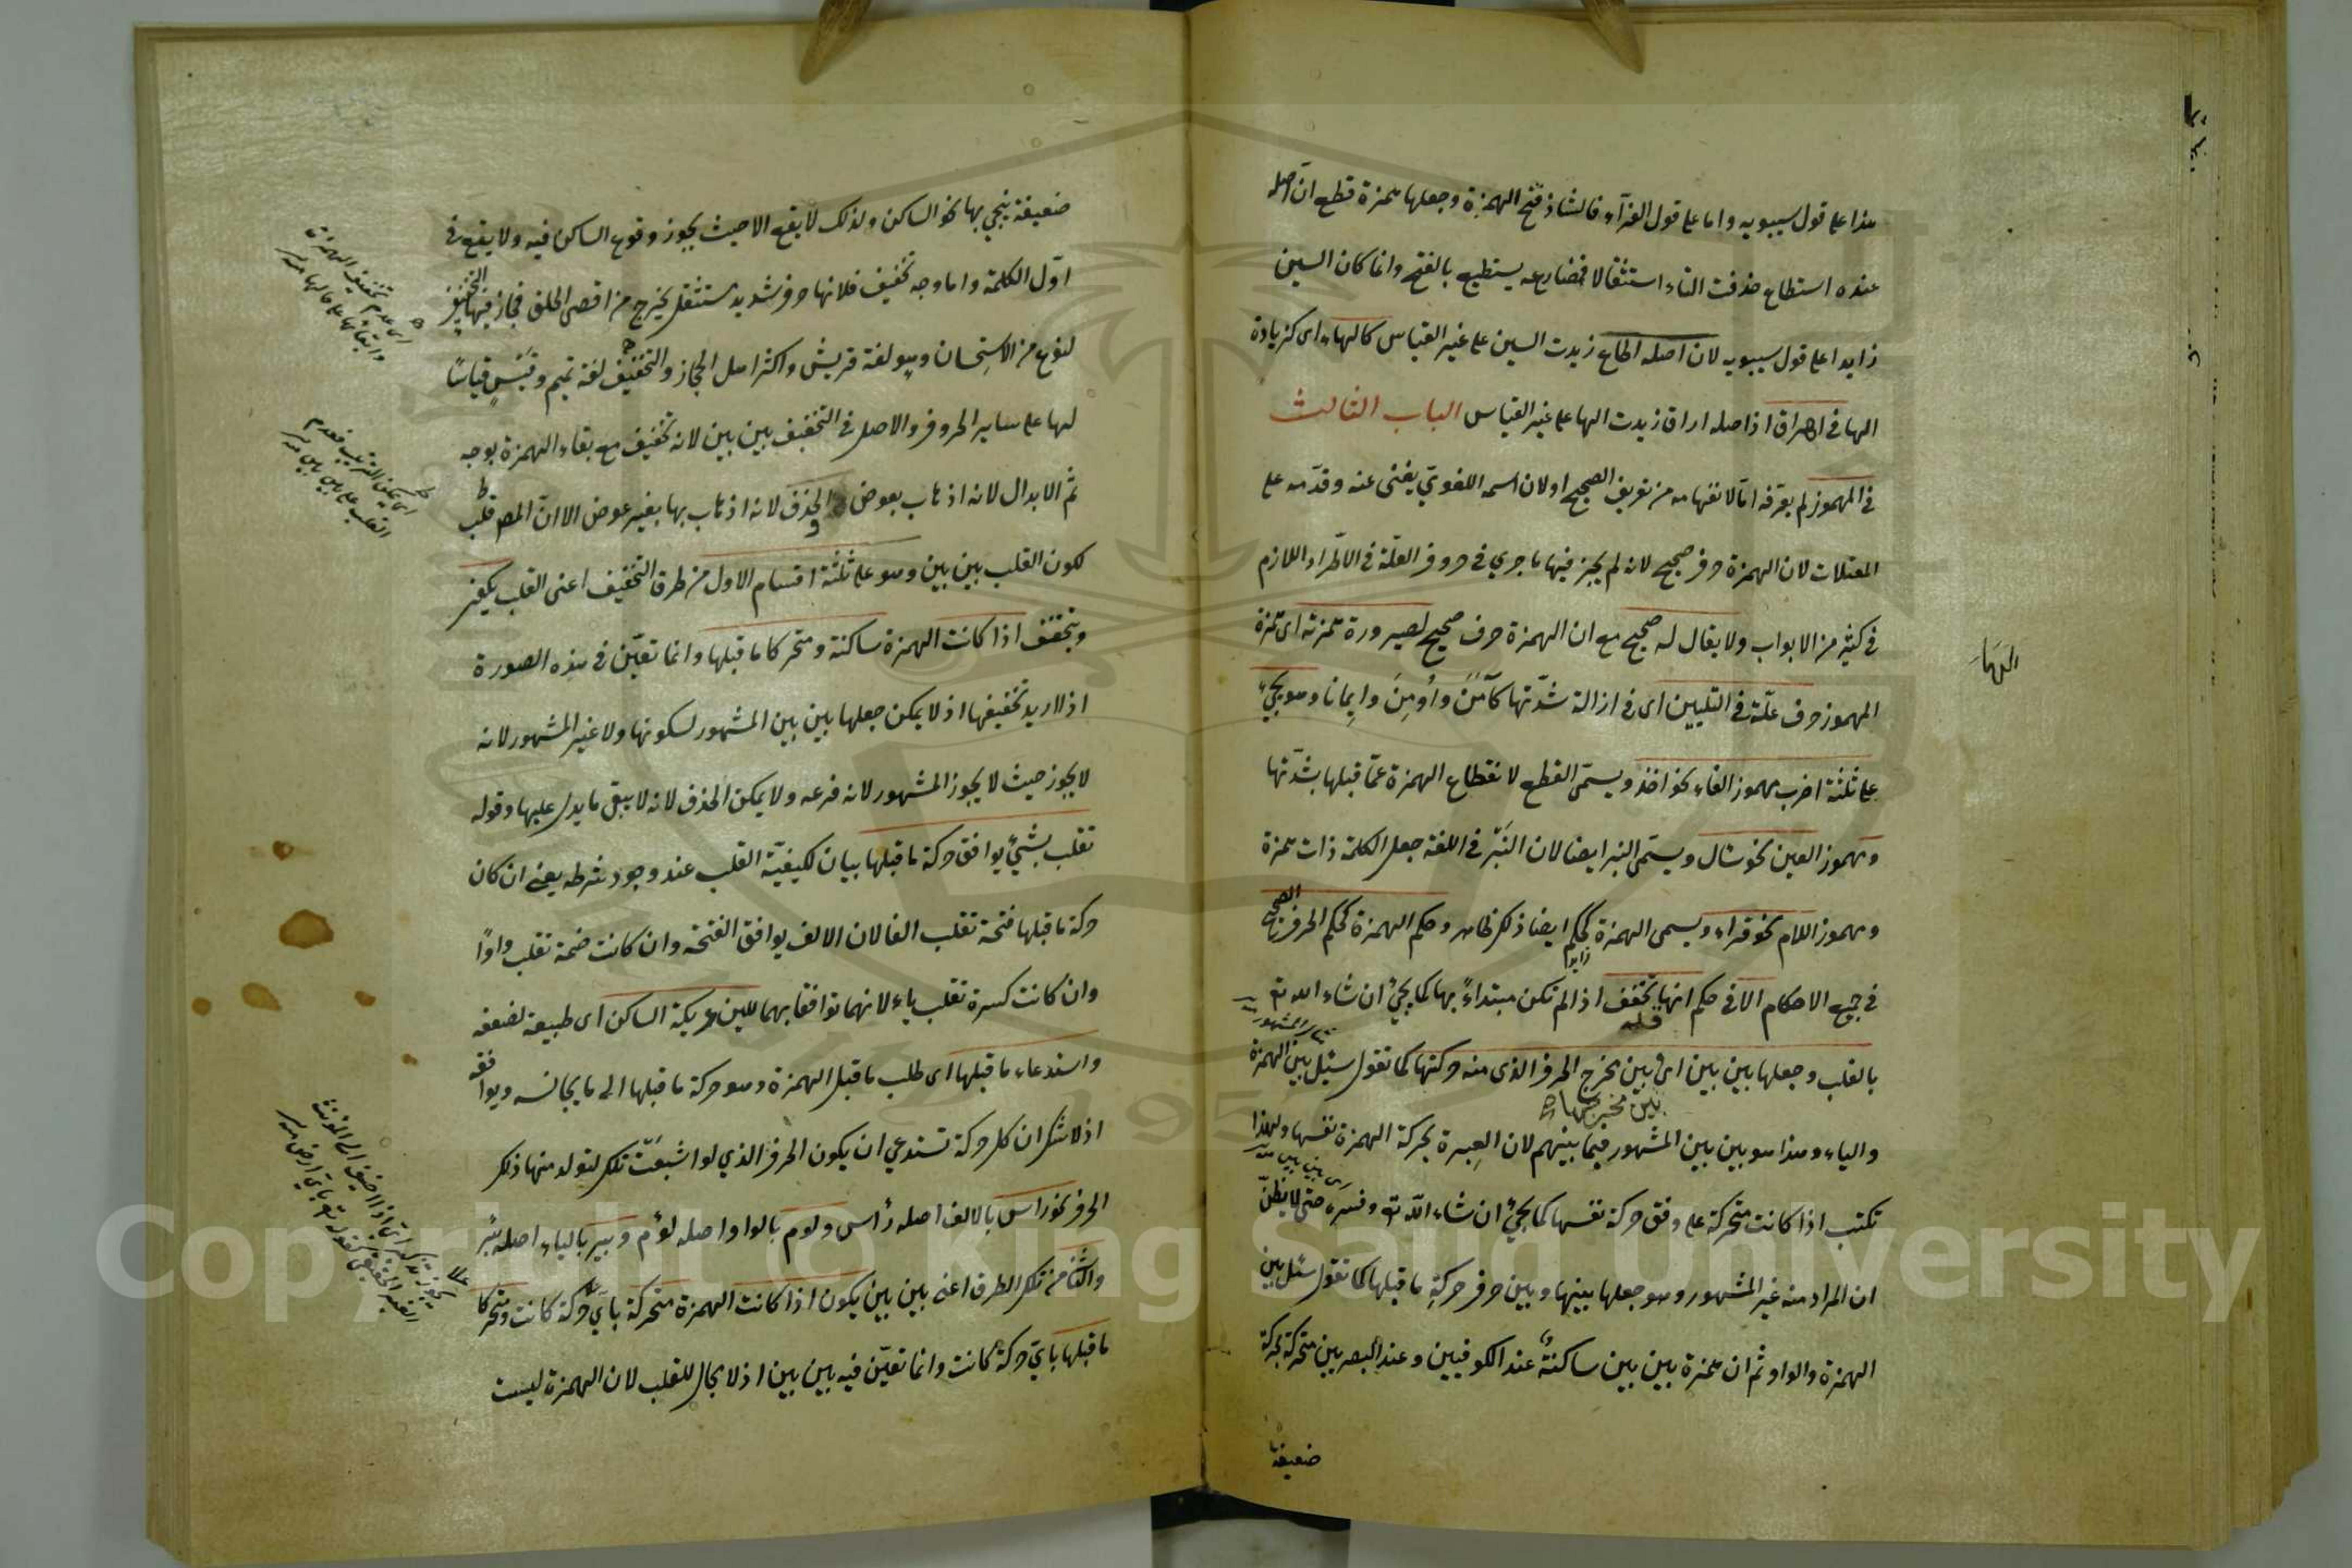 هذا على قول سيبويه واما على قول الفرآء فالشاذ فتح الهمزة وجعلها همزة قطع ان اصله
عنده استطاع حذفت التاء استثقالا فمضارعه يستطيع بالفتح وانما كان السين
زايدا على قول سيبويه لان اصله اطاع زيدت السين على غير القياس كالهاء اى كزيادة
الها فى اهراق اذ اصله اراق زيدت الها على غير القياس الباب الثالث
فى المهموز لم يعرفه امّا لانفهامه من تعريف الصحيح او لان اسمه اللغويّ يغنى عنه وقدّمه على
المعتلات لان الهمزة حرف صحيح لانه لم يجز فيها ما جري فى حروف العلّة فى الاطّراد اللازم
فى كثير من الابواب ولا يقال له صحيح مع ان الهمزة حرف صحيح لصيرورة همزته اى همزة
المهموز حرف علّة فى التليين اى فى ازالة شدّتها كآمَنَ وأُومِنَ وإيمانا وهو يجيء
على ثلثة اضرب مهموز الفاء نحو اخذ ويسمّى القطع لانقطاع الهمزة عمّا قبلها بشدّتها
ومهموز العين نحو سأل ويسمّى النبر ايضا لان النَّبْر فى اللغة جعل الكلمة ذات همزة
ومهموز اللام نحو قراء ويسمى الهمزة كحكم ايضا ذلك ظاهر وحكم الهمزة كحكم الحرف الصحيح
فى جميع الاحكام الا فى حكم انها تخفف اذ الم تكن مبتداءً بها كما يجئ ان شاء الله تع
بالقلب وجعلها بين بين اى بين مخرج الحرف الذى منه حركتها كما تقول سئل بين الهمزة
بين مخرجها
والياء وهذا هو بين بين المشهور فيما بينهم لان العِبرة بحركة الهمزة نفسها ولهذا
تكتب اذا كانت متحركة على وفق حركة نفسها كما يجئ ان شاء الله تع وفسره حتى لا يظنّ
ان المراد منه غير المشهور وهو جعلها بينها وبين حرف حركةِ ما قبلها كما تقول سئل بين
الهمزة والواو ثم ان همزة بين بين ساكنةٌ عند الكوفيين وعند البصريين متحركة بحركة
ضعيفة
الهَاءَ
ضعيفة ينحي بها نحو الساكن ولذلك لا يقع الا حيث يجوز وقوع الساكن فيه ولا يقع فى
اوّل الكلمة واما وجه تخفيف فلانها حرف شديد مستثقل يخرج من اقصى الحلق فجاز فيها التخفيف
لنوع من الاستِحسان وهو لغة قريش واكثر اهل الحجاز والتخفيف لغة تميم وقيسٍ قياسًا
لها على ساير الحروف والاصل فى التخفيف بين بين لانه تخفيف مع بقاء الهمزة بوجه
ثمّ الابدال لانه اذهاب بعوض والحذف لانه اذهاب بها بغير عوض الا انّ المص قلب
لكون القلب بين بين وهو على ثلثة اقسام الاول من طرق التخفيف اعنى القلب يكون
ويتحقق اذا كانت الهمزة ساكنة ومتحركا ما قبلها وانما تعيّن فى هذه الصورة
اذ لاريد تخفيفها اذ لا يمكن جعلها بين بين المشهور لسكونها ولا غير المشهور لانه
لا يجوز حيث لا يجوز المشهور لانه فرعه ولا يمكن الحذف لانه لا يبقى ما يدل عليها وقوله
تقلب بشئ يوافق حركة ما قبلها بيان لكيفيّة القلب عند وجود شرطه يعنى ان كان
حركة ما قبلها فتحة تقلب الفا لان الالف يوافق الفتحة وان كانت ضمة تقلب واوًا
وان كانت كسرة تقلب ياء لانهما توافقا بهما للين عريكة الساكن اى طبيعة لضعفه
واستدعاء ما قبلها اى طلب ما قبل الهمزة وهو حركة ما قبلها الى ما يجانسه ويوافقه
اذ لا شك ان كل حركة تستدعي ان يكون الحرف الذي لو اشبعت تلك لتولد منها ذلك
الحرف نحو راس بالالف اصله رأس ولوم بالواو اصله لؤم وبير بالياء اصله بئر
والثانى من تلك الطرق اعنى بين بين يكون اذا كانت الهمزة متحركة باىّ حركة كانت ومتحركا
ما قبلها باىّ حركة كانت وانما تعيّن فيه بين بين اذ لا مجال للقلب لان الهمزة ليست
اى عدم تخفيف الهمزة
وابقائها على حالها منه
Copyright © King Saud University
1957